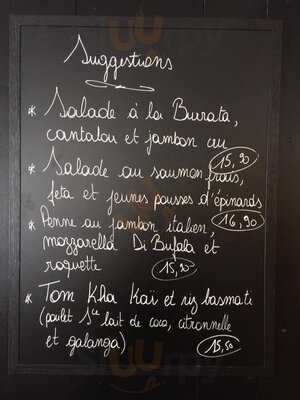 Suggestions
* Salade à la Burata,
cantalou et jambon cru
15,90
* Salade au saumon frais,
feta et jeunes pousses d'épinards
16,90
* Penne au jambon italien,
mozzarella Di Bufala et
roquette 15,90
* Tom Kha Kaï et riz basmati
(poulet, lait de coco, citronnelle
et galanga) 15,50